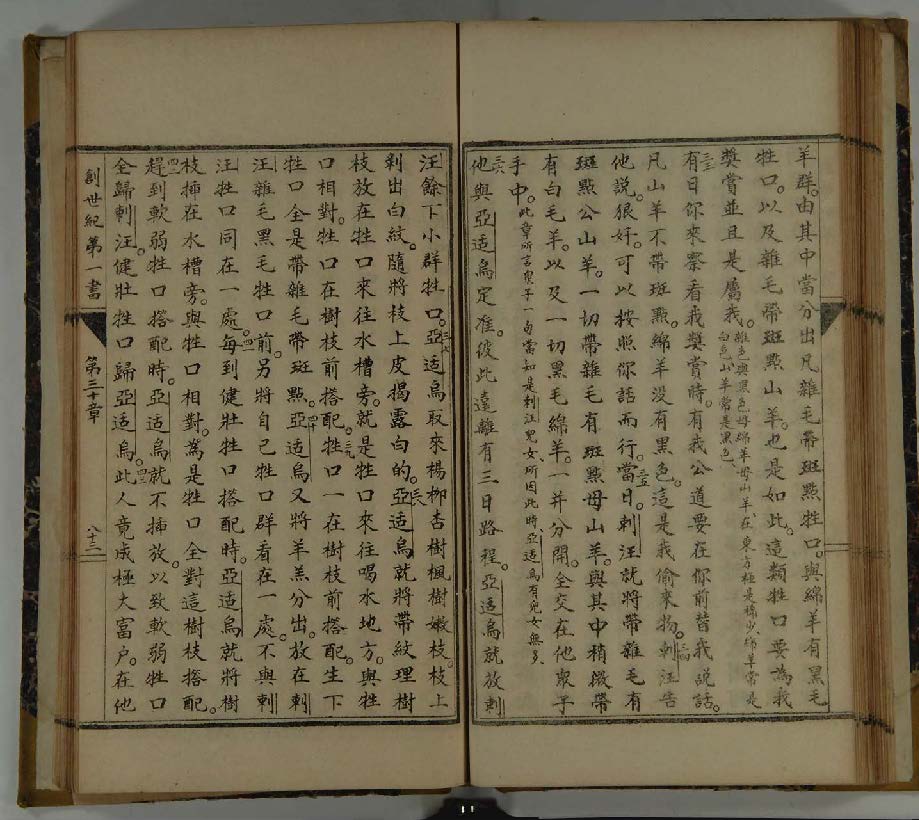 羊群。由其中當分出凡雜毛帶斑點牲口。與綿羊有黑毛
牲口。以及雜毛帶斑點山羊。也是如此。這類牲口要為我
獎賞並且是屬我。雜色與黑色母綿羊、母山羊、在東方極是稀少、綿羊常是
白色、山羊常是黑色、
三三
有日你來察看我獎賞時。有我公道要在你前替我說話。
凡山羊不帶斑點。綿羊沒有黑色。這是我偷來物。三四剌汪告
他說。狠好。可以按照你話而行。三五當日。剌汪就將帶雜毛有
斑點公山羊。一切帶雜毛有斑點母山羊。與其中稍微帶
有白毛羊。以及一切黑毛綿羊。一并分開。全交在他眾子
手中。此章所言眾子一句當知是剌汪兒女、所因此時、亞适烏有兒女無多、
三六
他與亞适烏定准。彼此遠離有三日路程。亞适烏就放剌
汪餘下小群牲口。三七亞适烏取來楊柳杏樹楓樹嫩枝。枝上
剝出白紋。隨將枝上皮揭露白的。三八亞适烏就將帶紋理樹
枝放在牲口來往水槽旁。就是牲口來往喝水地方。與牲
口相對。牲口在樹枝前搭配。三九牲口一在樹枝前搭配。生下
牲口全是帶雜毛帶斑點。四十亞适烏又將羊羔分出。放在剌
汪雜毛黑毛牲口前。另將自己牲口群看在一處。不與剌
汪牲口同在一處。四一每到健壯牲口搭配時。亞适烏就將樹
枝插在水槽旁。與牲口相對。為是牲口全對這樹枝搭配。
四二
趕到軟弱牲口搭配時。亞适烏就不插放。以致軟弱牲口
全歸剌汪。健壯牲口歸亞适烏。四三此人竟成極大富戶。在他
創世紀第一書
第三十章
八十三